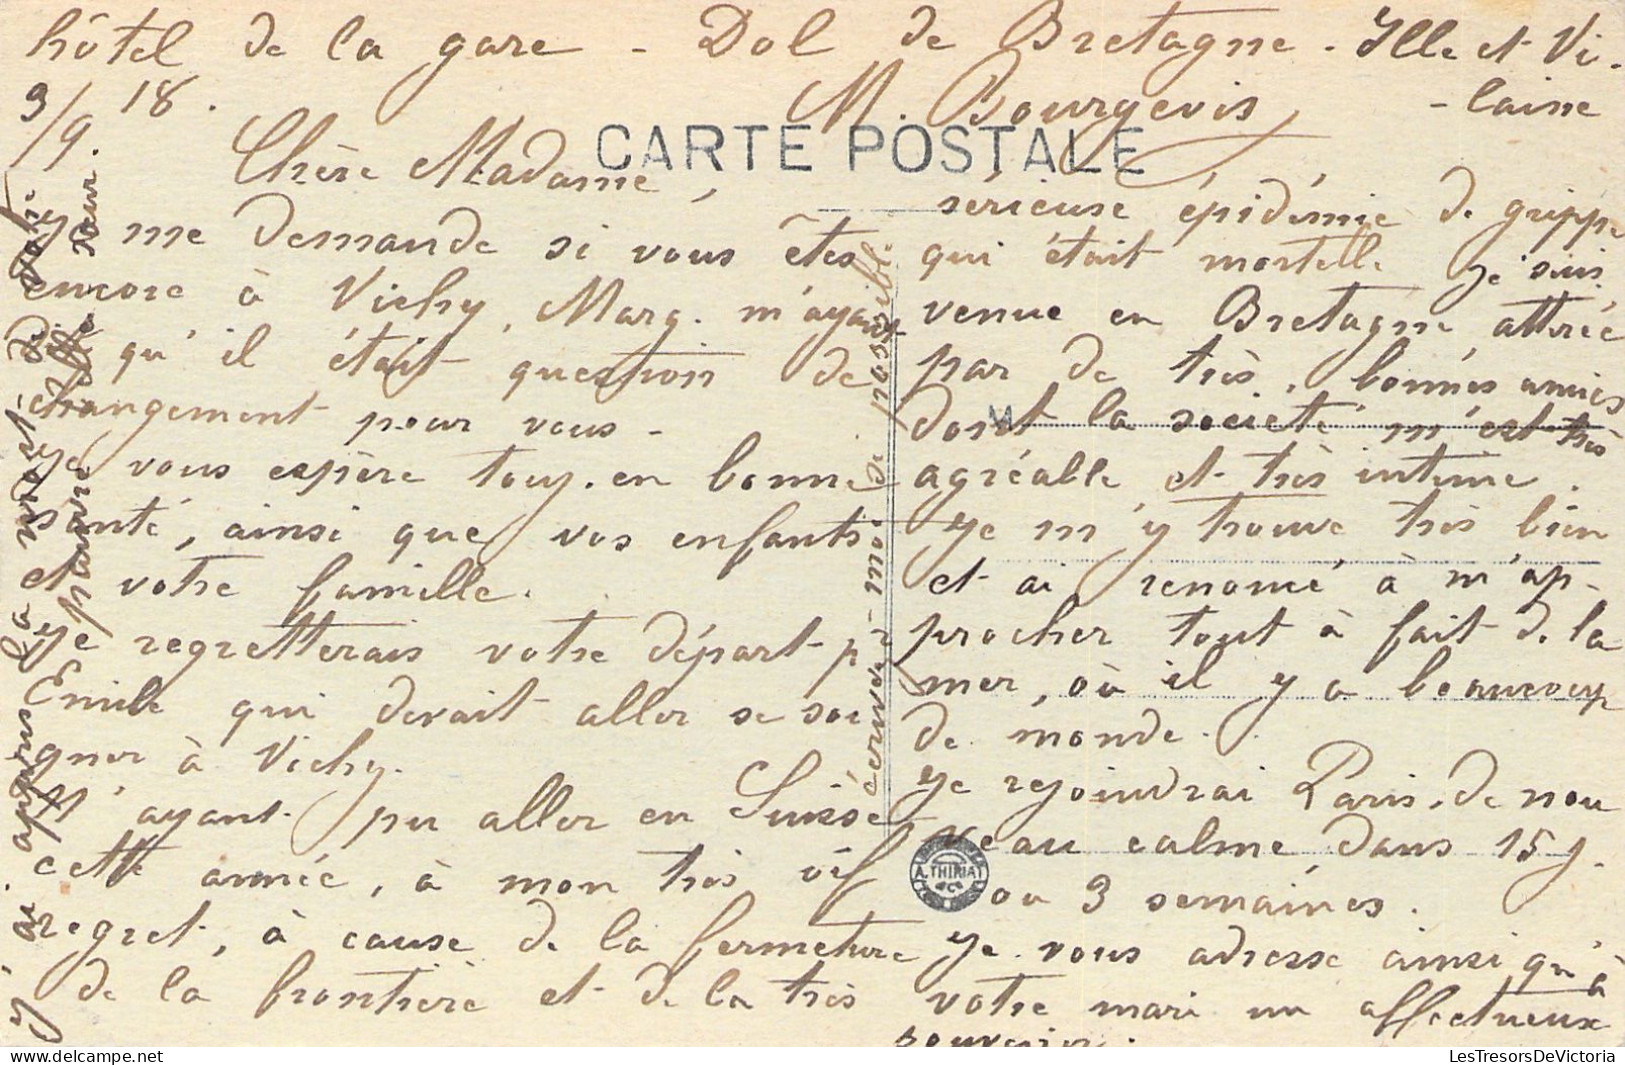 hôtel de la gare - Dol de Bretagne - Ille et Vi-
- laine
3/9. 18. M. Bourgevis
CARTE POSTALE
Chère Madame,
Je me demande si vous êtes
encore à Vichy, Marg. m'ayant
dit qu'il était question de
changement pour vous -
Je vous espère touj. en bonne
santé, ainsi que vos enfants
et votre famille.
Je regretterais votre départ pr
Emile qui devait aller se soi
gner à Vichy.
N'ayant pu aller en Suisse
cette année, à mon très vif
regret, à cause de la fermeture
de la frontière et de la très
sérieuse épidémie de grippe
qui était mortelle je suis
venue en Bretagne, attirée
par de très bonnes amies
dont la société m'est très
agréable et très intime.
Je m'y trouve très bien
et ai renoncé à m'ap-
procher tout à fait de la
mer, où il y a beaucoup
de monde.
Je rejoindrai Paris, de nou
veau calme, dans 15 j.
ou 3 semaines.
Je vous adresse ainsi qu'à
votre mari un affectueux
souvenir.
A. THIRIAT
écrivez-moi si possible
J'ai appris la mort de votre
pauvre